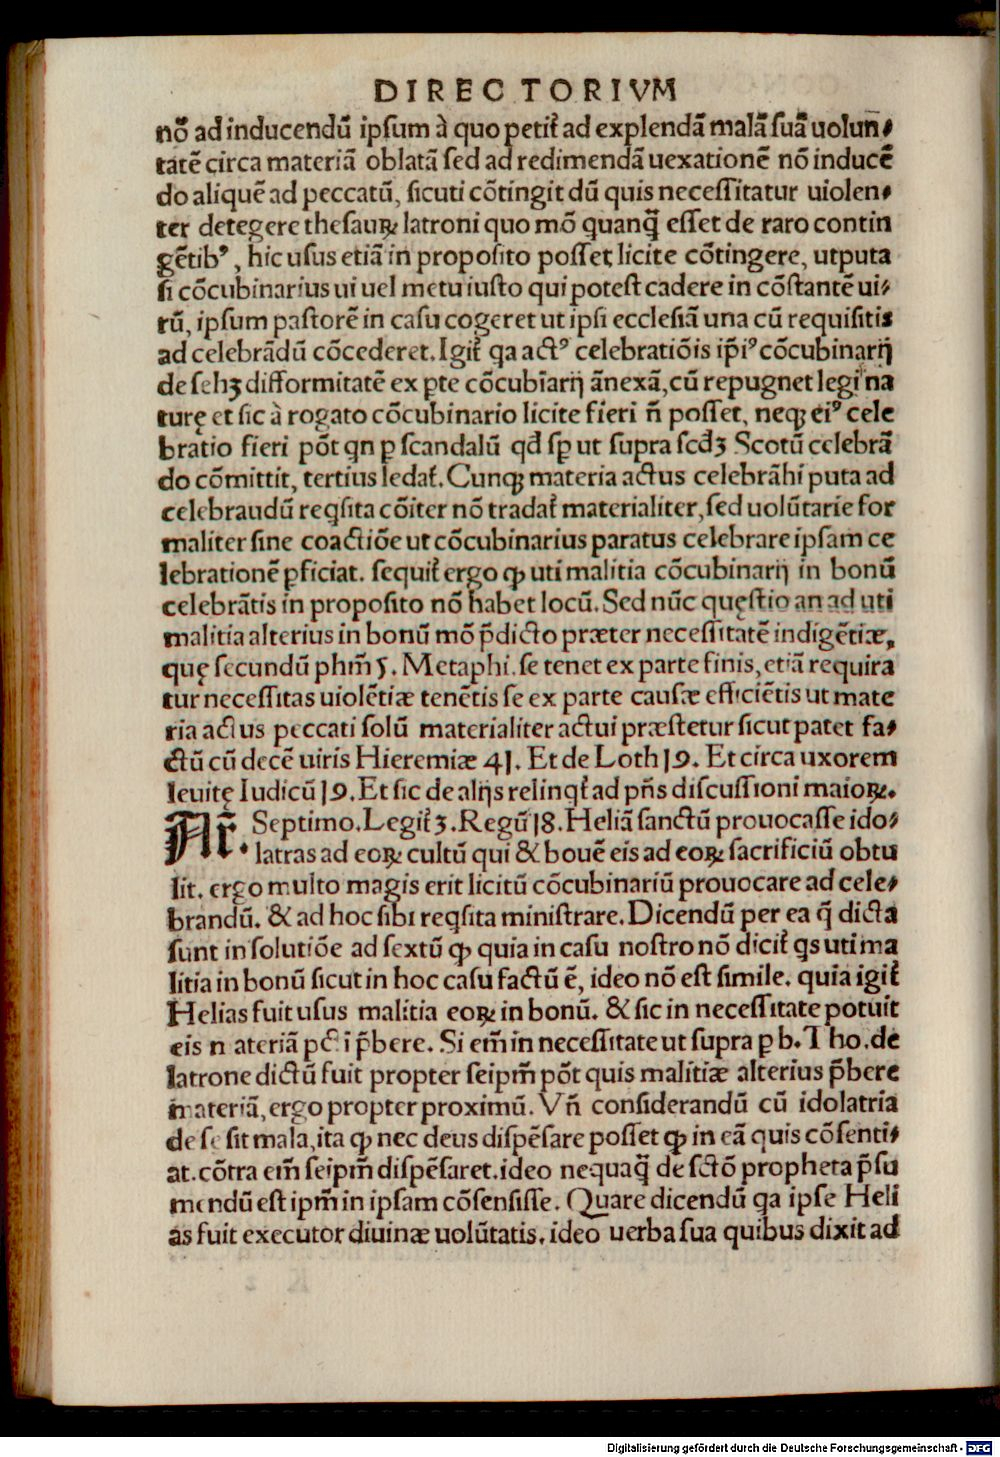 DIRECTORIVM
nō ad inducendū ipsum à quo petit᷑ ad explendā malā suā uolun⸗
tatē circa materiā oblatā sed ad redimendā uexationē nō inducē
do aliquē ad peccatū, sicuti cōtingit dū quis necessitatur uiolen⸗
ter detegere thesauꝝ latroni quo mō quanq̄ esset de raro contin
gētibꝰ, hic usus etiā in proposito posset licite cōtingere, utputa
si cōcubinarius ui uel metu iusto qui potest cadere in cōstantē ui⸗
rū, ipsum pastorē in casu cogeret ut ipsi ecclesiā una cū requisitis
ad celebrādū cōcederet. Igit᷑ qa actꝰ celebratiōis ip̄iꝰ cōcubinarij
de se hꝫ difformitatē ex ꝑte cōcubīarij ānexā, cū repugnet legi na
turę et sic à rogato cōcubinario licite fieri n̄ posset, neqꝫ eiꝰ cele
bratio fieri pōt qn ꝑ scandalū qd̄ sꝑ ut supra scd̄ꝫ Scotū celebrā
do cōmittit, tertius ledat᷑. Cunqꝫ materia actus celebrāhi puta ad
celebraudū reqsita cōiter nō tradat᷑ materialiter, sed uolūtarie for
maliter sine coactiōe ut cōcubinarius paratus celebrare ipsam ce
lebrationē ꝑficiat. sequit᷑ ergo ꝙ uti malitia cōcubinarij in bonū
celebrātis in proposito nō habet locū. Sed nūc quęstio an ad uti
malitia alterius in bonū mō p̄dicto præter necessitatē indigētiæ,
quę secundū phm̄ 5. Metaphi. se tenet ex parte finis, etiā requira
tur necessitas uiolētiæ tenētis se ex parte causæ efficiētis ut mate
ria actus peccati solū materialiter actui præstetur sicut patet fa⸗
ctū cū decē uiris Hieremiæ 41. Et de Loth 19. Et circa uxorem
leuitę Iudicū 19. Et sic de alijs relinqt᷑ ad pn̄s discussioni maioꝝ.
Ar̄. Septimo. Legit᷑ 3. Regū 18. Heliā sanctū prouocasse ido⸗
latras ad eoꝝ cultū qui & bouē eis ad eoꝝ sacrificiū obtu
lit. ergo multo magis erit licitū cōcubinariū prouocare ad cele⸗
brandū. & ad hoc sibi reqsita ministrare. Dicendū per ea q̄ dicta
sunt in solutiōe ad sextū ꝙ quia in casu nostro nō dicit᷑ qs uti ma
litia in bonū sicut in hoc casu factū ē, ideo nō est simile. quia igit᷑
Helias fuit usus malitia eoꝝ in bonū. & sic in necessitate potuit
eis materiā pcti p̄bere. Si em̄ in necessitate ut supra ꝑ b. Tho. de
latrone dictū fuit propter seipm̄ pōt quis malitiæ alterius p̄bere
materiā, ergo propter proximū. Vn̄ considerandū cū idolatria
de se sit mala, ita ꝙ nec deus dispēsare posset ꝙ in eā quis cōsenti⸗
at. cōtra em̄ seipm̄ dispēsaret. ideo nequaq̄ de sctō propheta p̄su
mendū est ipm̄ in ipsam cōsensisse. Quare dicendū qa ipse Heli
as fuit executor diuinæ uolūtatis. ideo uerba sua quibus dixit ad
Digitalisierung gefördert durch die Deutsche Forschungsgemeinschaft - DFG